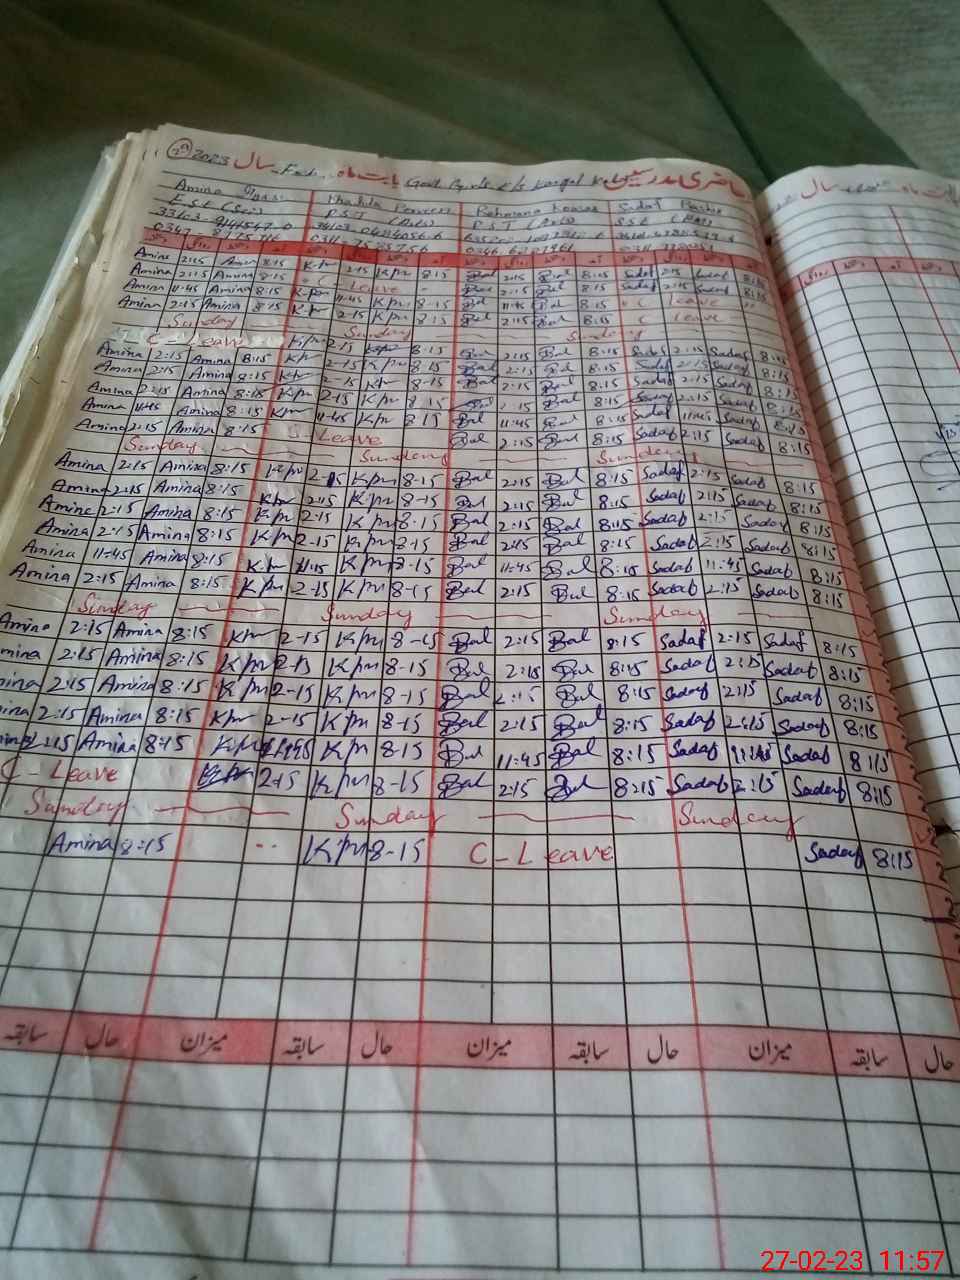 29 2023 سال Feb بابت ماہ Govt Girls حاضری مدرسین
Amina
Khalida Parveen
Rehmana
Sadaf Bashir
E.S.E (Sci)
P.S.T (Arts)
P.S.T (Arts)
Amina 2:15 Amina 8:15 Kpm 2-15 Kpm 8-15 Bal 2:15 Bal 8:15 Sadaf 2:15 Sadaf 8:15
Amina 2:15 Amina 8:15 C-Leave Bal 2:15 Bal 8:15 Sadaf 2:15 Sadaf 8:15
Amina 11:45 Amina 8:15 Kpm 11-45 Kpm 8-15 Bal 11:45 Bal 8:15 C Leave
Amina 2:15 Amina 8:15 Kpm 2-15 Kpm 8-15 Bal 2:15 Bal 8:15 C Leave
Sunday Sunday Sunday
C-Leave Kpm 2-15 8-15 Bal 2:15 Bal 8:15 Sadaf 2:15 Sadaf 8:15
Amina 2:15 Amina 8:15 Kpm 2-15 Kpm 8-15 Bal 2:15 Bal 8:15 Sadaf 2:15 Sadaf 8:15
Amina 2:15 Amina 8:15 Kpm 2-15 Kpm 8-15 Bal 2:15 Bal 8:15 Sadaf 2:15 Sadaf 8:15
Amina 2:15 Amina 8:15 Kpm 2-15 Kpm 8-15 Bal 2:15 Bal 8:15 Sadaf 2:15 Sadaf 8:15
Amina 11:45 Amina 8:15 Kpm 11-45 Kpm 8-15 Bal 11:45 Bal 8:15 Sadaf 11:45 Sadaf 8:15
Amina 2:15 Amina 8:15 C-Leave Bal 2:15 Bal 8:15 Sadaf 2:15 Sadaf 8:15
Sunday Sunday Sunday
Amina 2:15 Amina 8:15 Kpm 2-15 Kpm 8-15 Bal 2:15 Bal 8:15 Sadaf 2:15 Sadaf 8:15
Amina 2:15 Amina 8:15 Kpm 2-15 Kpm 8-15 Bal 2:15 Bal 8:15 Sadaf 2:15 Sadaf 8:15
Amina 2:15 Amina 8:15 Kpm 2-15 Kpm 8-15 Bal 2:15 Bal 8:15 Sadaf 2:15 Sadaf 8:15
Amina 2:15 Amina 8:15 Kpm 2-15 Kpm 8-15 Bal 2:15 Bal 8:15 Sadaf 2:15 Sadaf 8:15
Amina 11:45 Amina 8:15 Kpm 11-15 Kpm 8-15 Bal 11:45 Bal 8:15 Sadaf 11:45 Sadaf 8:15
Amina 2:15 Amina 8:15 Kpm 2-15 Kpm 8-15 Bal 2:15 Bal 8:15 Sadaf 2:15 Sadaf 8:15
Sunday Sunday Sunday
Amina 2:15 Amina 8:15 Kpm 2-15 Kpm 8-15 Bal 2:15 Bal 8:15 Sadaf 2:15 Sadaf 8:15
mina 2:15 Amina 8:15 Kpm 2-15 Kpm 8-15 Bal 2:15 Bal 8:15 Sadaf 2:15 Sadaf 8:15
nina 2:15 Amina 8:15 Kpm 2-15 Kpm 8-15 Bal 2:15 Bal 8:15 Sadaf 2:15 Sadaf 8:15
ina 2:15 Amina 8:15 Kpm 2-15 Kpm 8-15 Bal 2:15 Bal 8:15 Sadaf 2:15 Sadaf 8:15
2:15 Amina 8:15 Kpm 11-45 Kpm 8-15 Bal 11:45 Bal 8:15 Sadaf 11:45 Sadaf 8:15
C-Leave Kpm 2-15 Kpm 8-15 Bal 2:15 Bal 8:15 Sadaf 2:15 Sadaf 8:15
Sunday Sunday Sunday
Amina 8:15 Kpm 8-15 C-Leave Sadaf 8:15
سابقہ حال میزان سابقہ حال میزان سابقہ حال میزان سابقہ حال
27-02-23 11:57